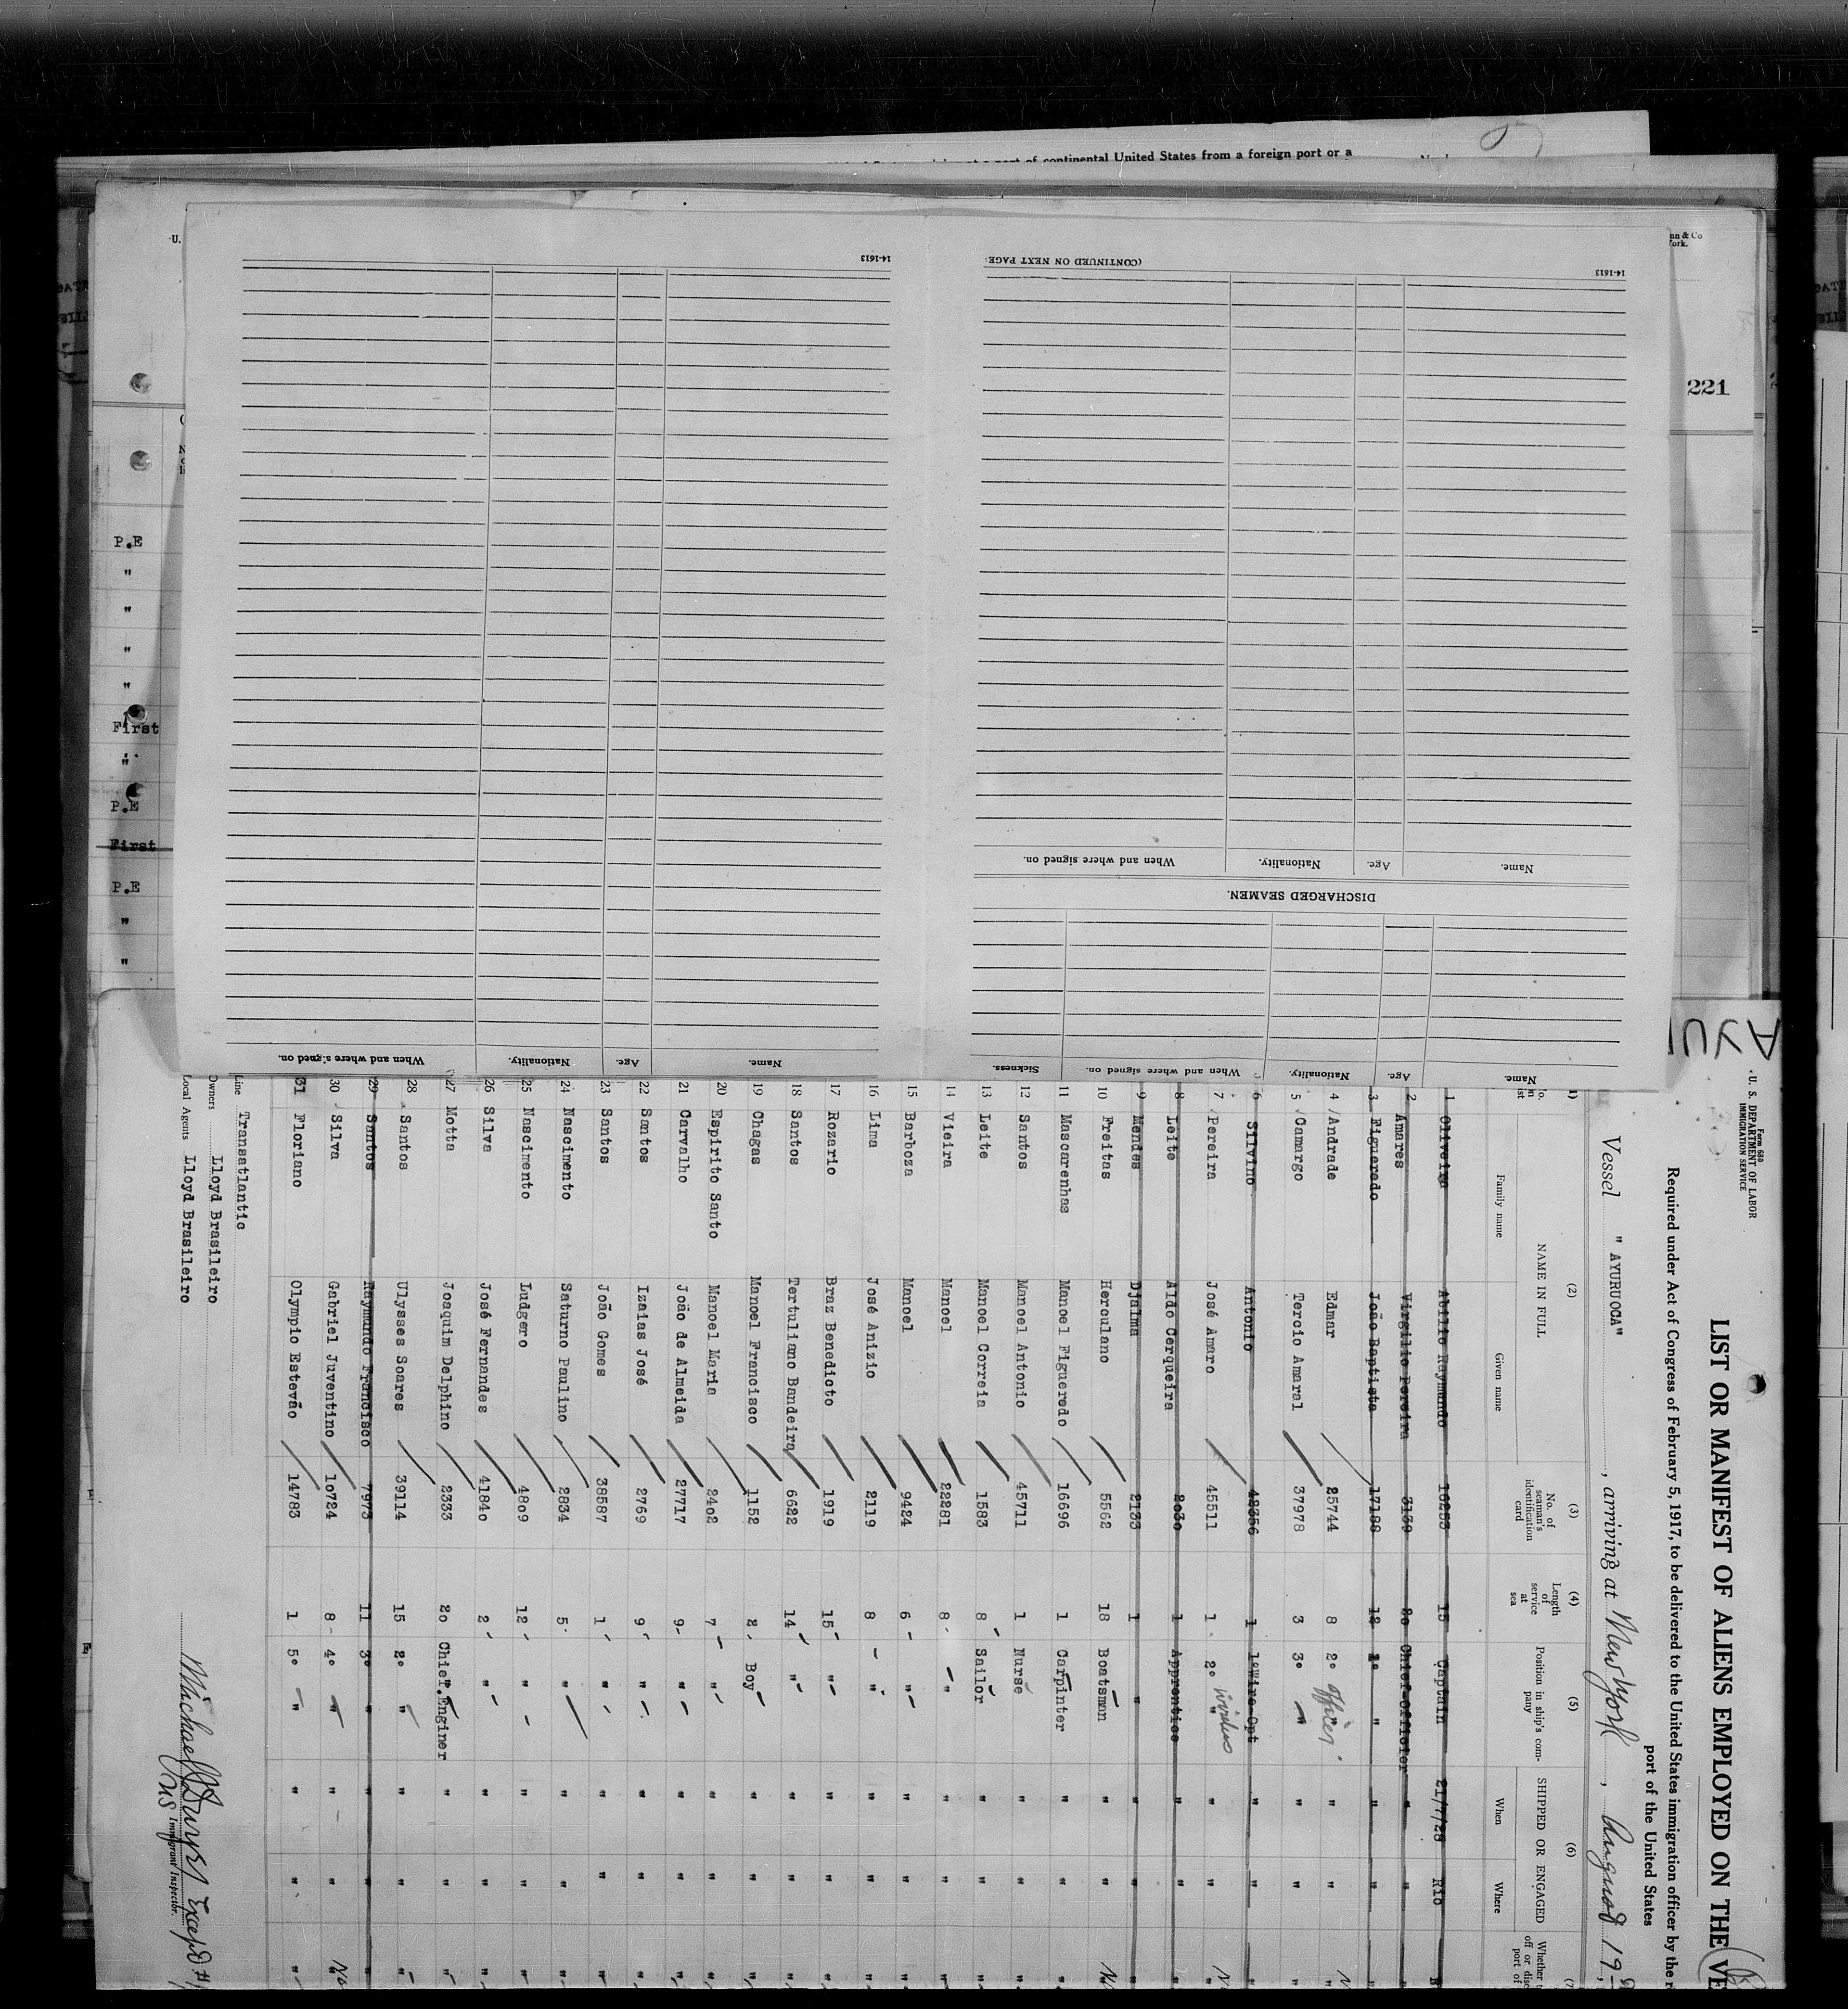 of continental United States from a foreign port or a
221
14-1613
14-1613
(CONTINUED ON NEXT PAGE
Name. Age. Nationality. When and where signed on.
DISCHARGED SEAMEN.
Name. Age. Nationality. When and where signed on. Sickness.
Name. Age. Nationality. When and where signed on.
P.E
"
"
"
"
First
"
P.E
First
P.E
"
"
"
Form 680
U. S. DEPARTMENT OF LABOR
IMMIGRATION SERVICE
LIST OR MANIFEST OF ALIENS EMPLOYED ON THE VE
Required under Act of Congress of February 5, 1917, to be delivered to the United States immigration officer by the r
port of the United States
Vessel " AYURUOCA" , arriving at New York , August 19
(2) (3) (4) (5) (6)
NAME IN FULL
Family name Given name
No. of seaman's identification card
Length of service at sea
Position in ship's company
SHIPPED OR ENGAGED
When Where
1 Oliveira Abilio Raymundo 10253 15 Captain 21/7/28 Rio
2 Amares Virgilio Pereira 3139 20 Chief-Officier " "
3 Figueredo João Baptista 17188 12 1º " " "
4 Andrade Edmar 25744 8 2º officer " "
5 Camargo Tercio Amaral 37978 3 3º " " "
6 Silvino Antonio 48356 1 1ºWire-Opt " "
7 Pereira José Amaro 45511 1 2º " wireless " "
8 Leite Aldo Cerqueira 2030 1 Apprentice " "
9 Mendes Djalma 2133 1 " " "
10 Freitas Herculano 5562 18 Boatsman " "
11 Mascarenhas Manoel Figueredo 16696 1 Carpinter " "
12 Santos Manoel Antonio 45711 1 Nurse " "
13 Leite Manoel Correia 1583 8 Sailor " "
14 Vieira Manoel 22281 8 " " "
15 Barboza Manoel 9424 6 " " "
16 Lima José Anizio 2119 8 " " "
17 Rozario Braz Benedicto 1919 15 " " "
18 Santos Tertuliano Bandeira 6622 14 " " "
19 Chagas Manoel Francisco 1152 2 Boy " "
20 Espirito Santo Manoel Maria 2402 7 " " "
21 Carvalho João de Almeida 27717 9 " " "
22 Santos Izaias José 2769 9 " " "
23 Santos João Gomes 38587 1 " " "
24 Nascimento Saturno Paulino 2834 5 " " "
25 Nascimento Ludgero 4809 12 " " "
26 Silva José Fernandes 41840 2 " " "
27 Motta Joaquim Delphino 2333 20 Chief.Enginer " "
28 Santos Ulysses Soares 39114 15 2º " " "
29 Santos Raymundo Francisco 7973 11 3º " " "
30 Silva Gabriel Juventino 10724 8 4º " " "
31 Floriano Olympio Estevão 14783 1 5º " " "
Line Transatlantic
Owners Lloyd Brasileiro
Local Agents Lloyd Brasileiro
US Immigrant Inspector.